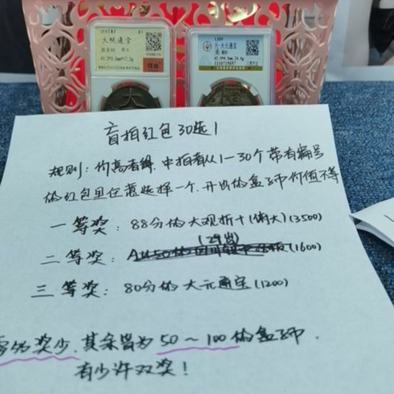 大观通宝
大元通宝
盲拍红包30选1
规则: 价高者得, 中拍者从1—30个带有编号
的红包里任意选择一个, 开出的盒子币价值不等
一等奖: 88分的大观折十(俏大)(3500)
(已出)
二等奖: (1600)
三等奖: 80分的大元通宝(1200)
奖少, 其余皆为50~100的盒子币,
有少许双奖!